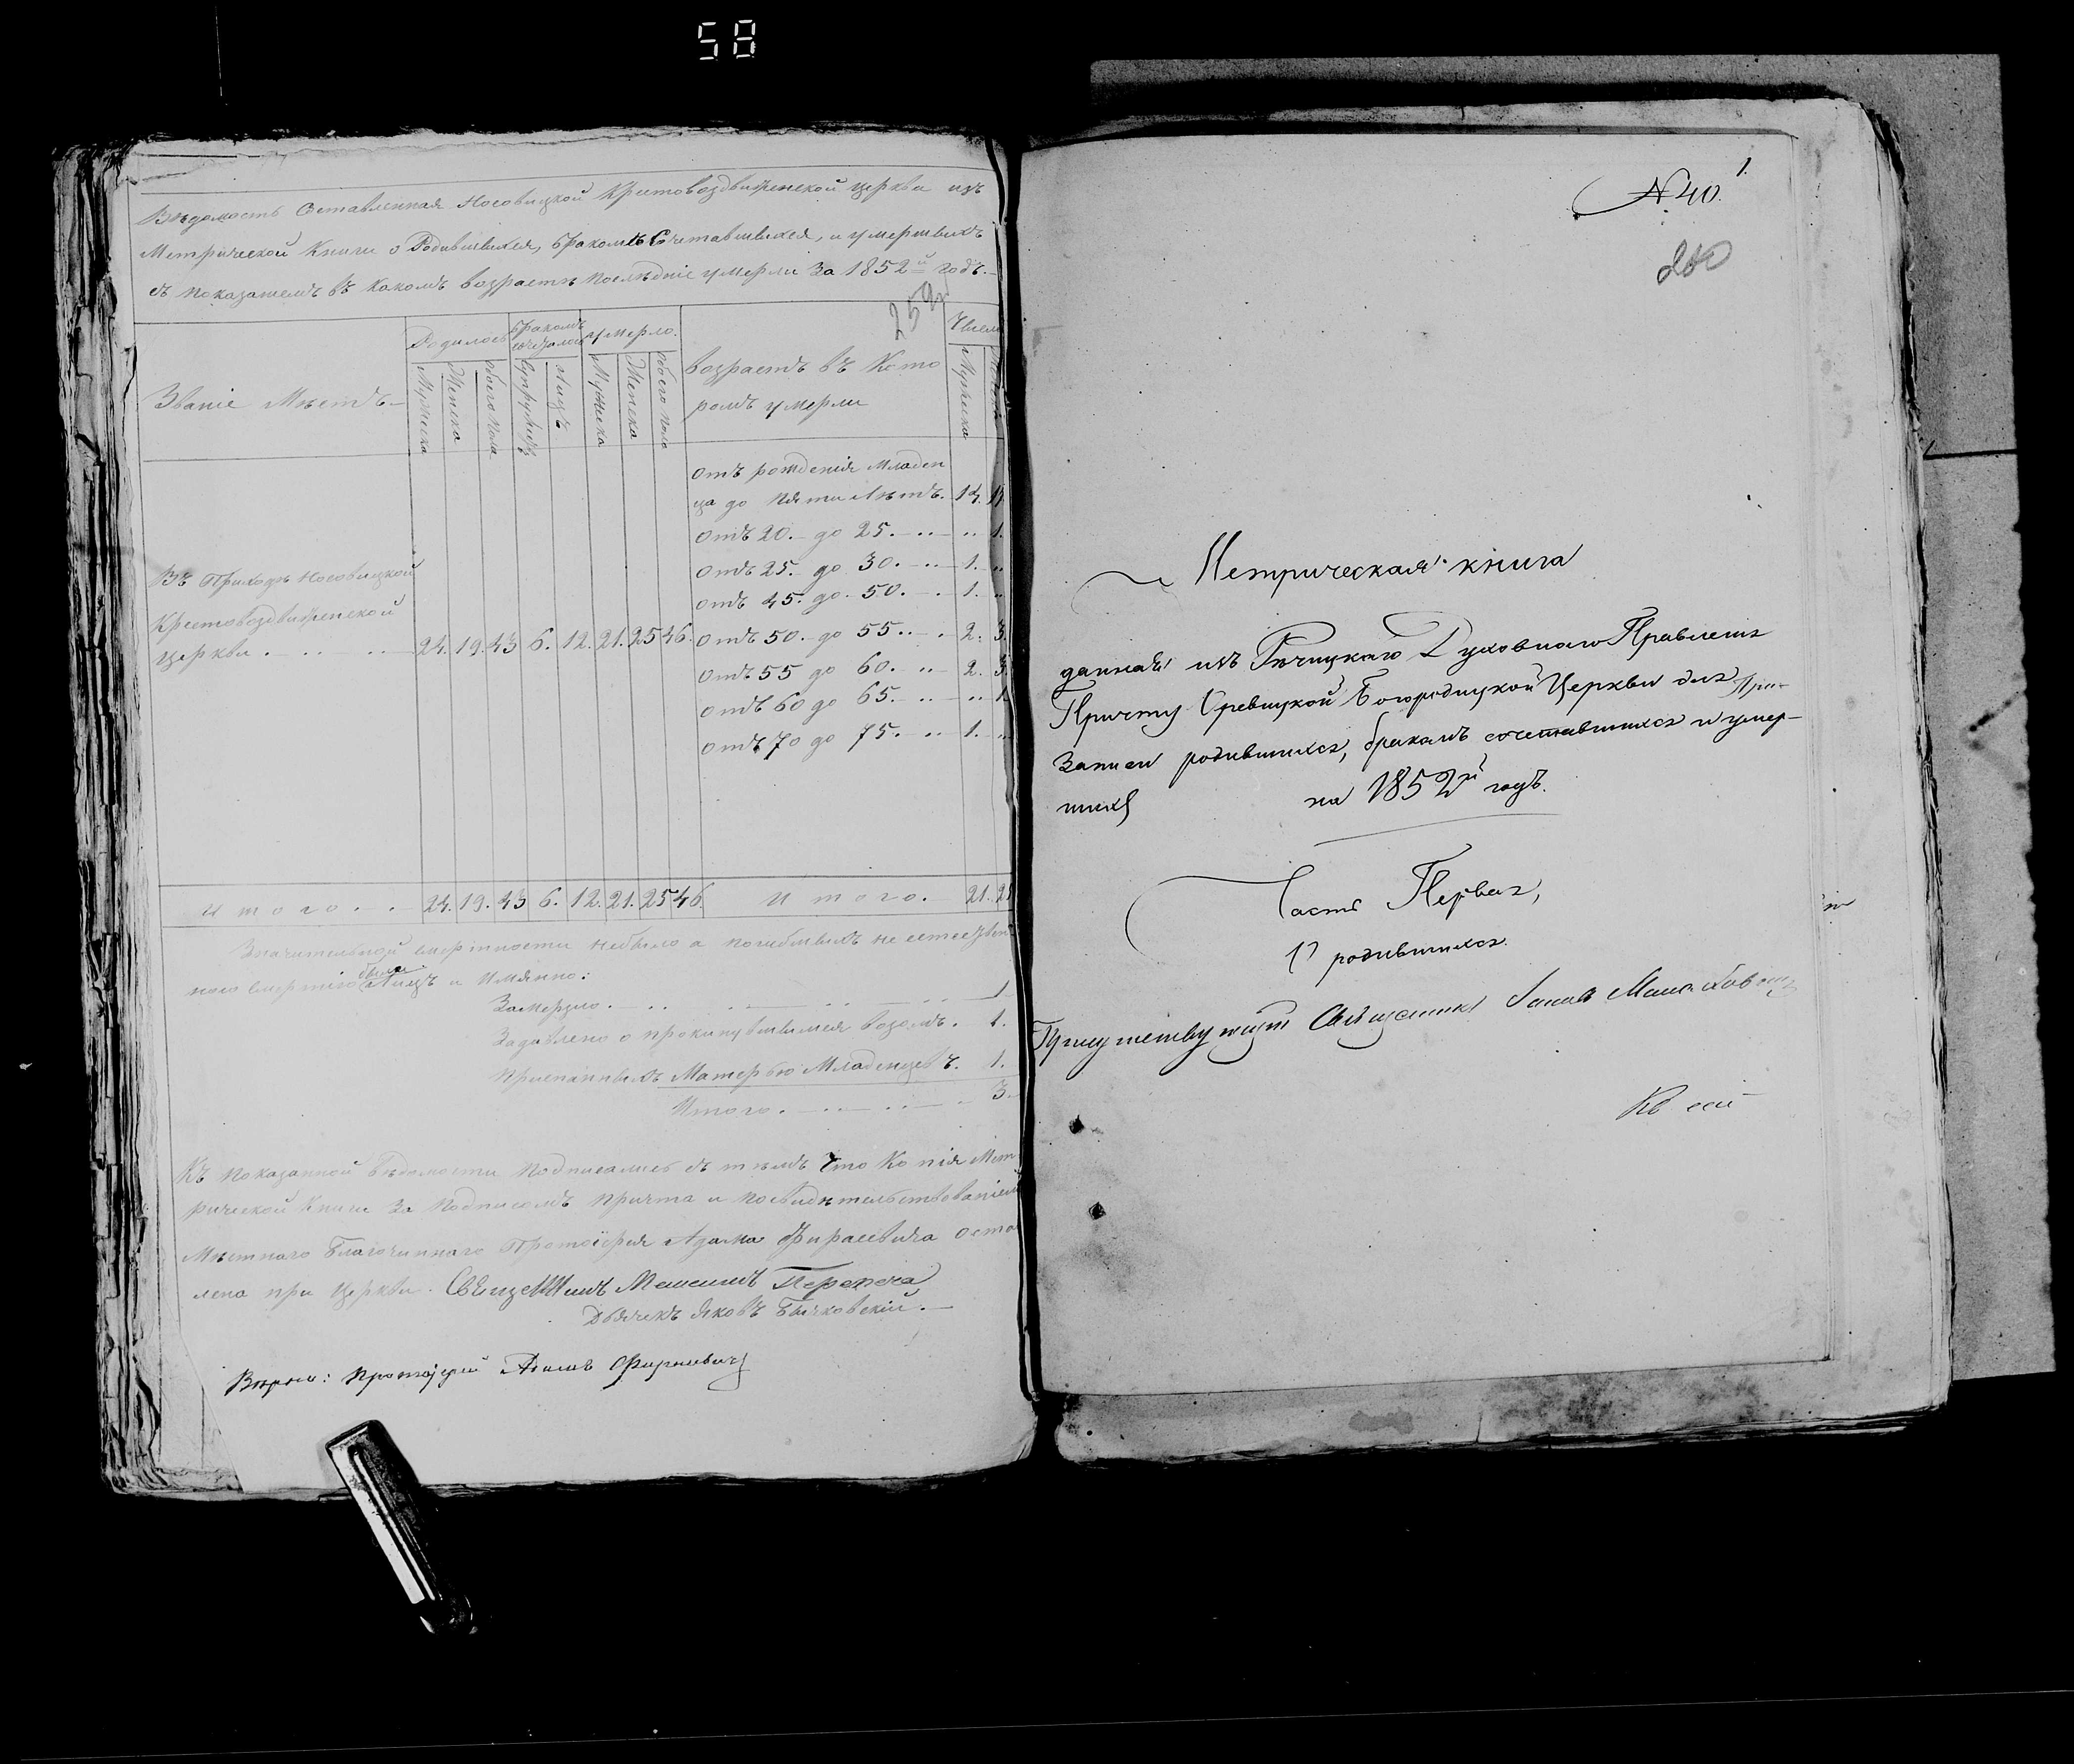 58
Вѣдомость Составленная Носовицкой Крестовоздвиженской церкви изъ
Метрической Книги о Родившихся, бракомъ Сочетавшихся, и умершихъ
съ показаніемъ въ какомъ возрастѣ последніе умерли За 1852й годъ.
259
Званіе Мѣстъ
Родилось
бракомъ сочеталось
умерло.
возрастъ въ Кото
ромъ умерли
Число
Мужеска
Женска
обоего пола
Супружествъ
Лицъ
Мужеска
Женска
обоего пола
Мужеска
отъ рожденія младен
ца до пяти лѣтъ. 14. 17
отъ 20. до 25. 1.
отъ 25. до 30. 1.
отъ 45. до 50. 1.
Въ Приходѣ Носовицкой
Крестовоздвиженской
церкви 24. 19. 43 6. 12. 21. 25 46. отъ 50. до 55. 2. 3.
отъ 55 до 60. 2. 3.
отъ 60 до 65. 1
отъ 70 до 75. 1.
Итого 24. 19. 43 6. 12. 21. 25 46. Итого. 21. 25
Значительной смертности небыло а погибшихъ не естествен
ною смертію было лицъ и Имянно:
Замерзло. 1
Задавлено опрокинувшимся возомъ. 1.
Приспанныхъ Матерью Младенцевъ. 1.
Итого. 3.
Къ показанной Вѣдомости подписались съ тѣмъ что Копія Мет
рической Книги За подписомъ причта и посвидѣтельствованіемъ
Мѣстнаго Благочиннаго Протоіерея Адама Фирасевича оста
лена при церкви. Священникъ Перепеча
Дьячекъ Яковъ Бычковскій.
Вѣрно: протоіерей Адамъ Фирасевичъ
1.
N 40.
260
Метрическая книга
данная изъ Рѣчицкаго Духовнаго Правленія
Причту Богородицкой Церкви для
Записи родившихся, бракомъ сочетавшихся и умер-
шихъ на 1852й годъ.
Часть Первая,
О родившихся.
Присутствующій Священникъ